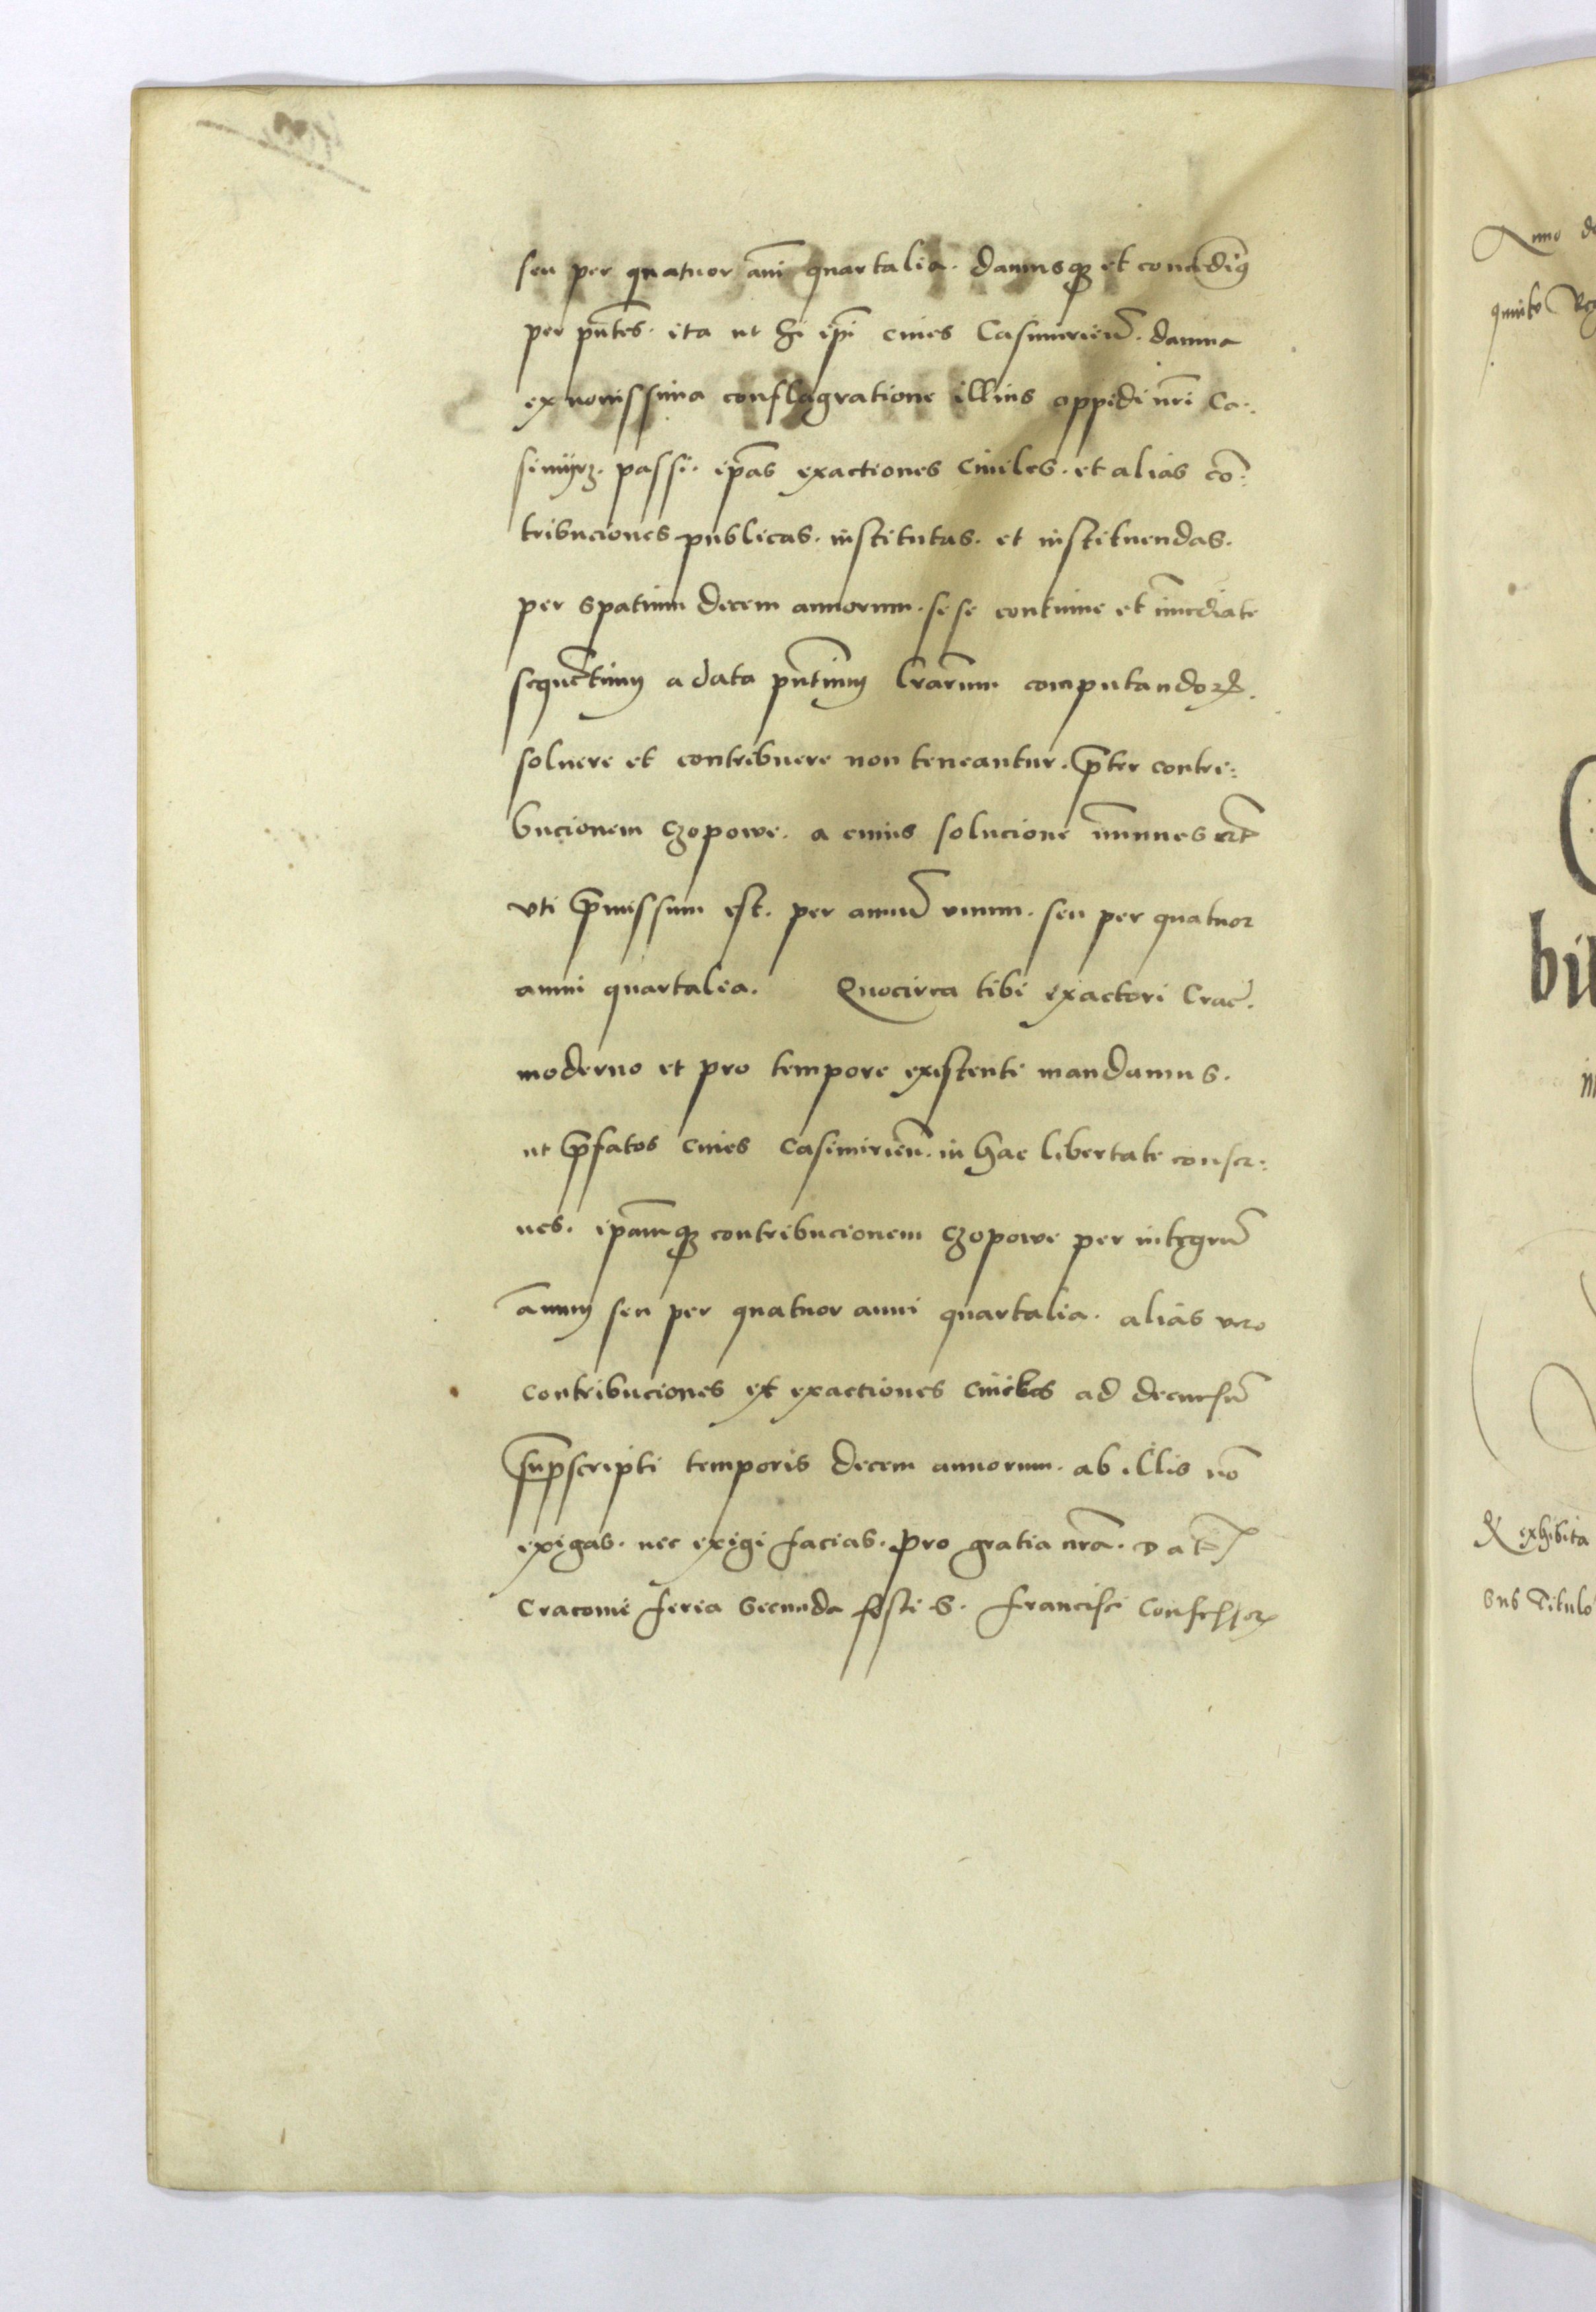 seu per quatuor ani quartalia. damusq₃ et concedimꝰ
per pn̄tes. ita ut hi ip̄i ciues Casimirieñ. damna
ex nouissima conflagratione illius oppidi nr̄i Ca-
simijrz. passi. ip̄as exactiones ciuiles. et alias co͞-
tribuciones publicas. institutas. et instituendas.
per spatium decem annorum. sese continue et im̄ediate
sequētium a data pn̄tium lr̄arum computandoꝝ.
soluere et contribuere non teneantur. p̄ter contri-
bucionem czopowe. a cuius solucione im̄unes er̄t
vti p̄missum est. per annū vnum. seu per quatuor
anni quartalia. Quocirca tibi exactori Crac̄.
moderno et pro tempore existenti mandamus.
ut p̄fatos ciues Casimirieñ. in hac libertate conser-
ues. ip̄amq₃ contribucionem czopowe per integrū
an̄um seu per quatuor anni quartalia. alias vero
contribuciones et exactiones ciuiles ad decursū
sup̄scripti temporis decem annorum. ab illis nō
exigas. nec exigi facias. pro gratia nr̄a. Dat̄
Cracouie feria secunda festi S. Francisci Confessor
Anno
quinto
bi
exhibita
sub titulo